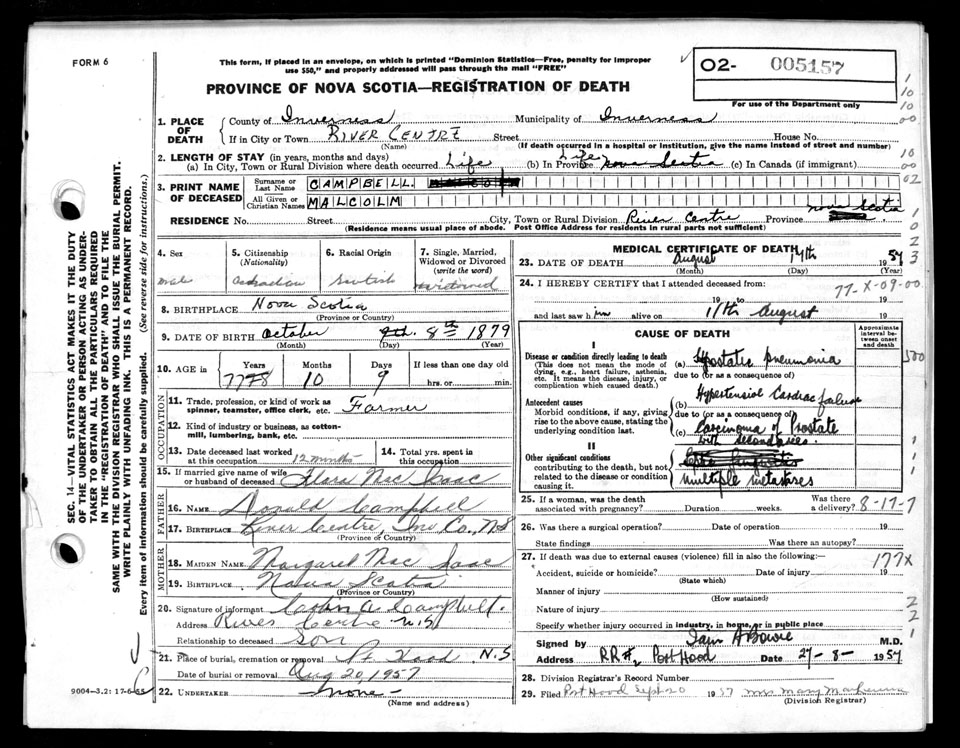 FORM 6
This form, if placed in an envelope, on which is printed "Dominion Statistics—Free, penalty for improper
use $50," and properly addressed will pass through the mail "FREE"
02- 005157
For use of the Department only
PROVINCE OF NOVA SCOTIA—REGISTRATION OF DEATH
1. PLACE OF DEATH
County of Inverness Municipality of Inverness
If in City or Town RIVER CENTRE Street House No.
(Name) (If death occurred in a hospital or Institution, give the name instead of street and number)
2. LENGTH OF STAY (in years, months and days)
(a) In City, Town or Rural Division where death occurred Life (b) In Province Life Nova Scotia (c) In Canada (if immigrant)
3. PRINT NAME OF DECEASED
Surname or Last Name CAMPBELL
All Given or Christian Names MALCOLM
RESIDENCE No. Street City, Town or Rural Division River Centre Province Nova Scotia
(Residence means usual place of abode. Post Office Address for residents in rural parts not sufficient)
SEC. 14—VITAL STATISTICS ACT MAKES IT THE DUTY
OF THE UNDERTAKER OR PERSON ACTING AS UNDER-
TAKER TO OBTAIN ALL THE PARTICULARS REQUIRED
IN THE "REGISTRATION OF DEATH" AND TO FILE THE
SAME WITH THE DIVISION REGISTRAR WHO SHALL ISSUE THE BURIAL PERMIT.
WRITE PLAINLY WITH UNFADING INK. THIS IS A PERMANENT RECORD.
Every item of information should be carefully supplied. (See reverse side for instructions.)
4. Sex
male
5. Citizenship
(Nationality)
Canadian
6. Racial Origin
Scotish
7. Single, Married,
Widowed or Divorced
(write the word)
widowed
8. BIRTHPLACE Nova Scotia
(Province or Country)
9. DATE OF BIRTH October 8th 1879
(Month) (Day) (Year)
10. AGE in
Years Months Days If less than one day old
77 10 9 hrs. or min.
OCCUPATION
11. Trade, profession, or kind of work as
spinner, teamster, office clerk, etc. Farmer
12. Kind of industry or business, as cotton-
mill, lumbering, bank, etc.
13. Date deceased last worked
at this occupation 12 months
14. Total yrs. spent in
this occupation
15. If married give name of wife
or husband of deceased Flora Mac Isaac
FATHER
16. NAME Donald Campbell
17. BIRTHPLACE River Centre, Inv Co, NS
(Province or Country)
MOTHER
18. MAIDEN NAME Margaret Mac Isaac
19. BIRTHPLACE Nova Scotia
(Province or Country)
20. Signature of informant A. Campbell.
Address River Centre NS
Relationship to deceased son
21. Place of burial, cremation or removal Pt Hood N.S
Date of burial or removal Aug 20, 1957
22. UNDERTAKER none
(Name and address)
9004-3.2: 17-6-55
MEDICAL CERTIFICATE OF DEATH
23. DATE OF DEATH August 17th 1957
(Month) (Day) (Year)
24. I HEREBY CERTIFY that I attended deceased from:
77-X-09-00
19 to 19
and last saw him alive on 11th August 19
CAUSE OF DEATH
Approximate interval between onset and death
I
Disease or condition directly leading to death
(This does not mean the mode of
dying, e.g., heart failure, asthenia,
etc. It means the disease, injury, or
complication which caused death.)
(a) Hypostatic pneumonia
due to (or as a consequence of)
Antecedent causes
Morbid conditions, if any, giving
rise to the above cause, stating the
underlying condition last.
(b) Hypertensial Cardiac failure
due to (or as a consequence of)
(c) Carcinoma of Prostate
with secondaries.
II
Other significant conditions
contributing to the death, but not
related to the disease or condition
causing it.
multiple metastases
25. If a woman, was the death
associated with pregnancy? Duration weeks. Was there
a delivery? 8-17-7
26. Was there a surgical operation? Date of operation 19
State findings Was there an autopsy?
27. If death was due to external causes (violence) fill in also the following:
177X
Accident, suicide or homicide? Date of injury 19
(State which)
Manner of injury
(How sustained)
Nature of injury
Specify whether injury occurred in industry, in home, or in public place
Signed by Iain A Bowie M.D.
Address RR#2 Port Hood Date 27-8-1957
28. Division Registrar's Record Number
29. Filed Port Hood Sept 20 1957 Mrs Mary
(Division Registrar)